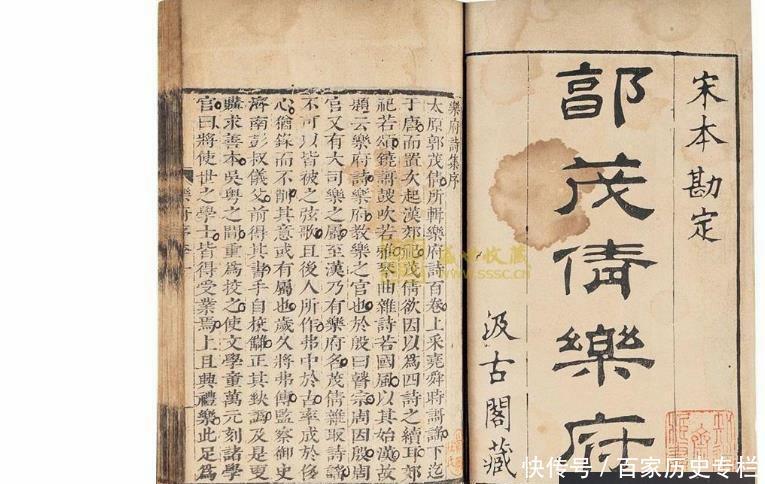 宋本勘定
郭茂倩樂府
汲古閣藏
樂府詩集序
太原郭茂倩所輯樂府詩百卷上采堯舜時謌謠下迄
于唐而置次起漢郊祀茂倩欲因以為四詩之續耳郊
祀若頌鐃謌鼓吹若雅琴曲雜詩若國風以其始漢故
題云樂府詩樂府教樂之官也於殷曰瞽宗周因殷周
官又有大司樂之屬至漢乃有樂府名茂倩雜取詩謠
不可以皆被之弦歌且後人所作弗中於古率成於侈
心猶錄而不削其意或有屬也歲久將弗傳監察御史
濟南彭叔儀父前得其書手自挍讎正其缺譌及是更
購求善本吳粵之間重為挍之使文學童萬元刻諸學
官曰將使世之學士皆得受業焉上且典禮樂此足為
www.sssc.cn
快传号 / 百家历史专栏